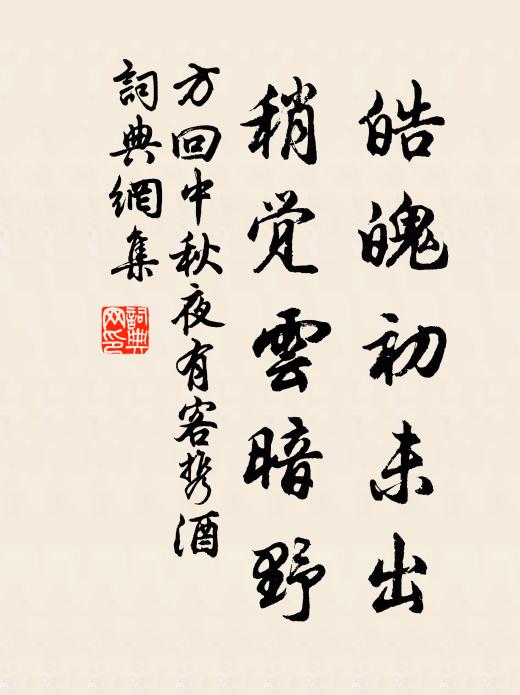 皓魄初未出
稍覺雲暗野
方回中秋夜有客携酒
詞典網集
詞典网印